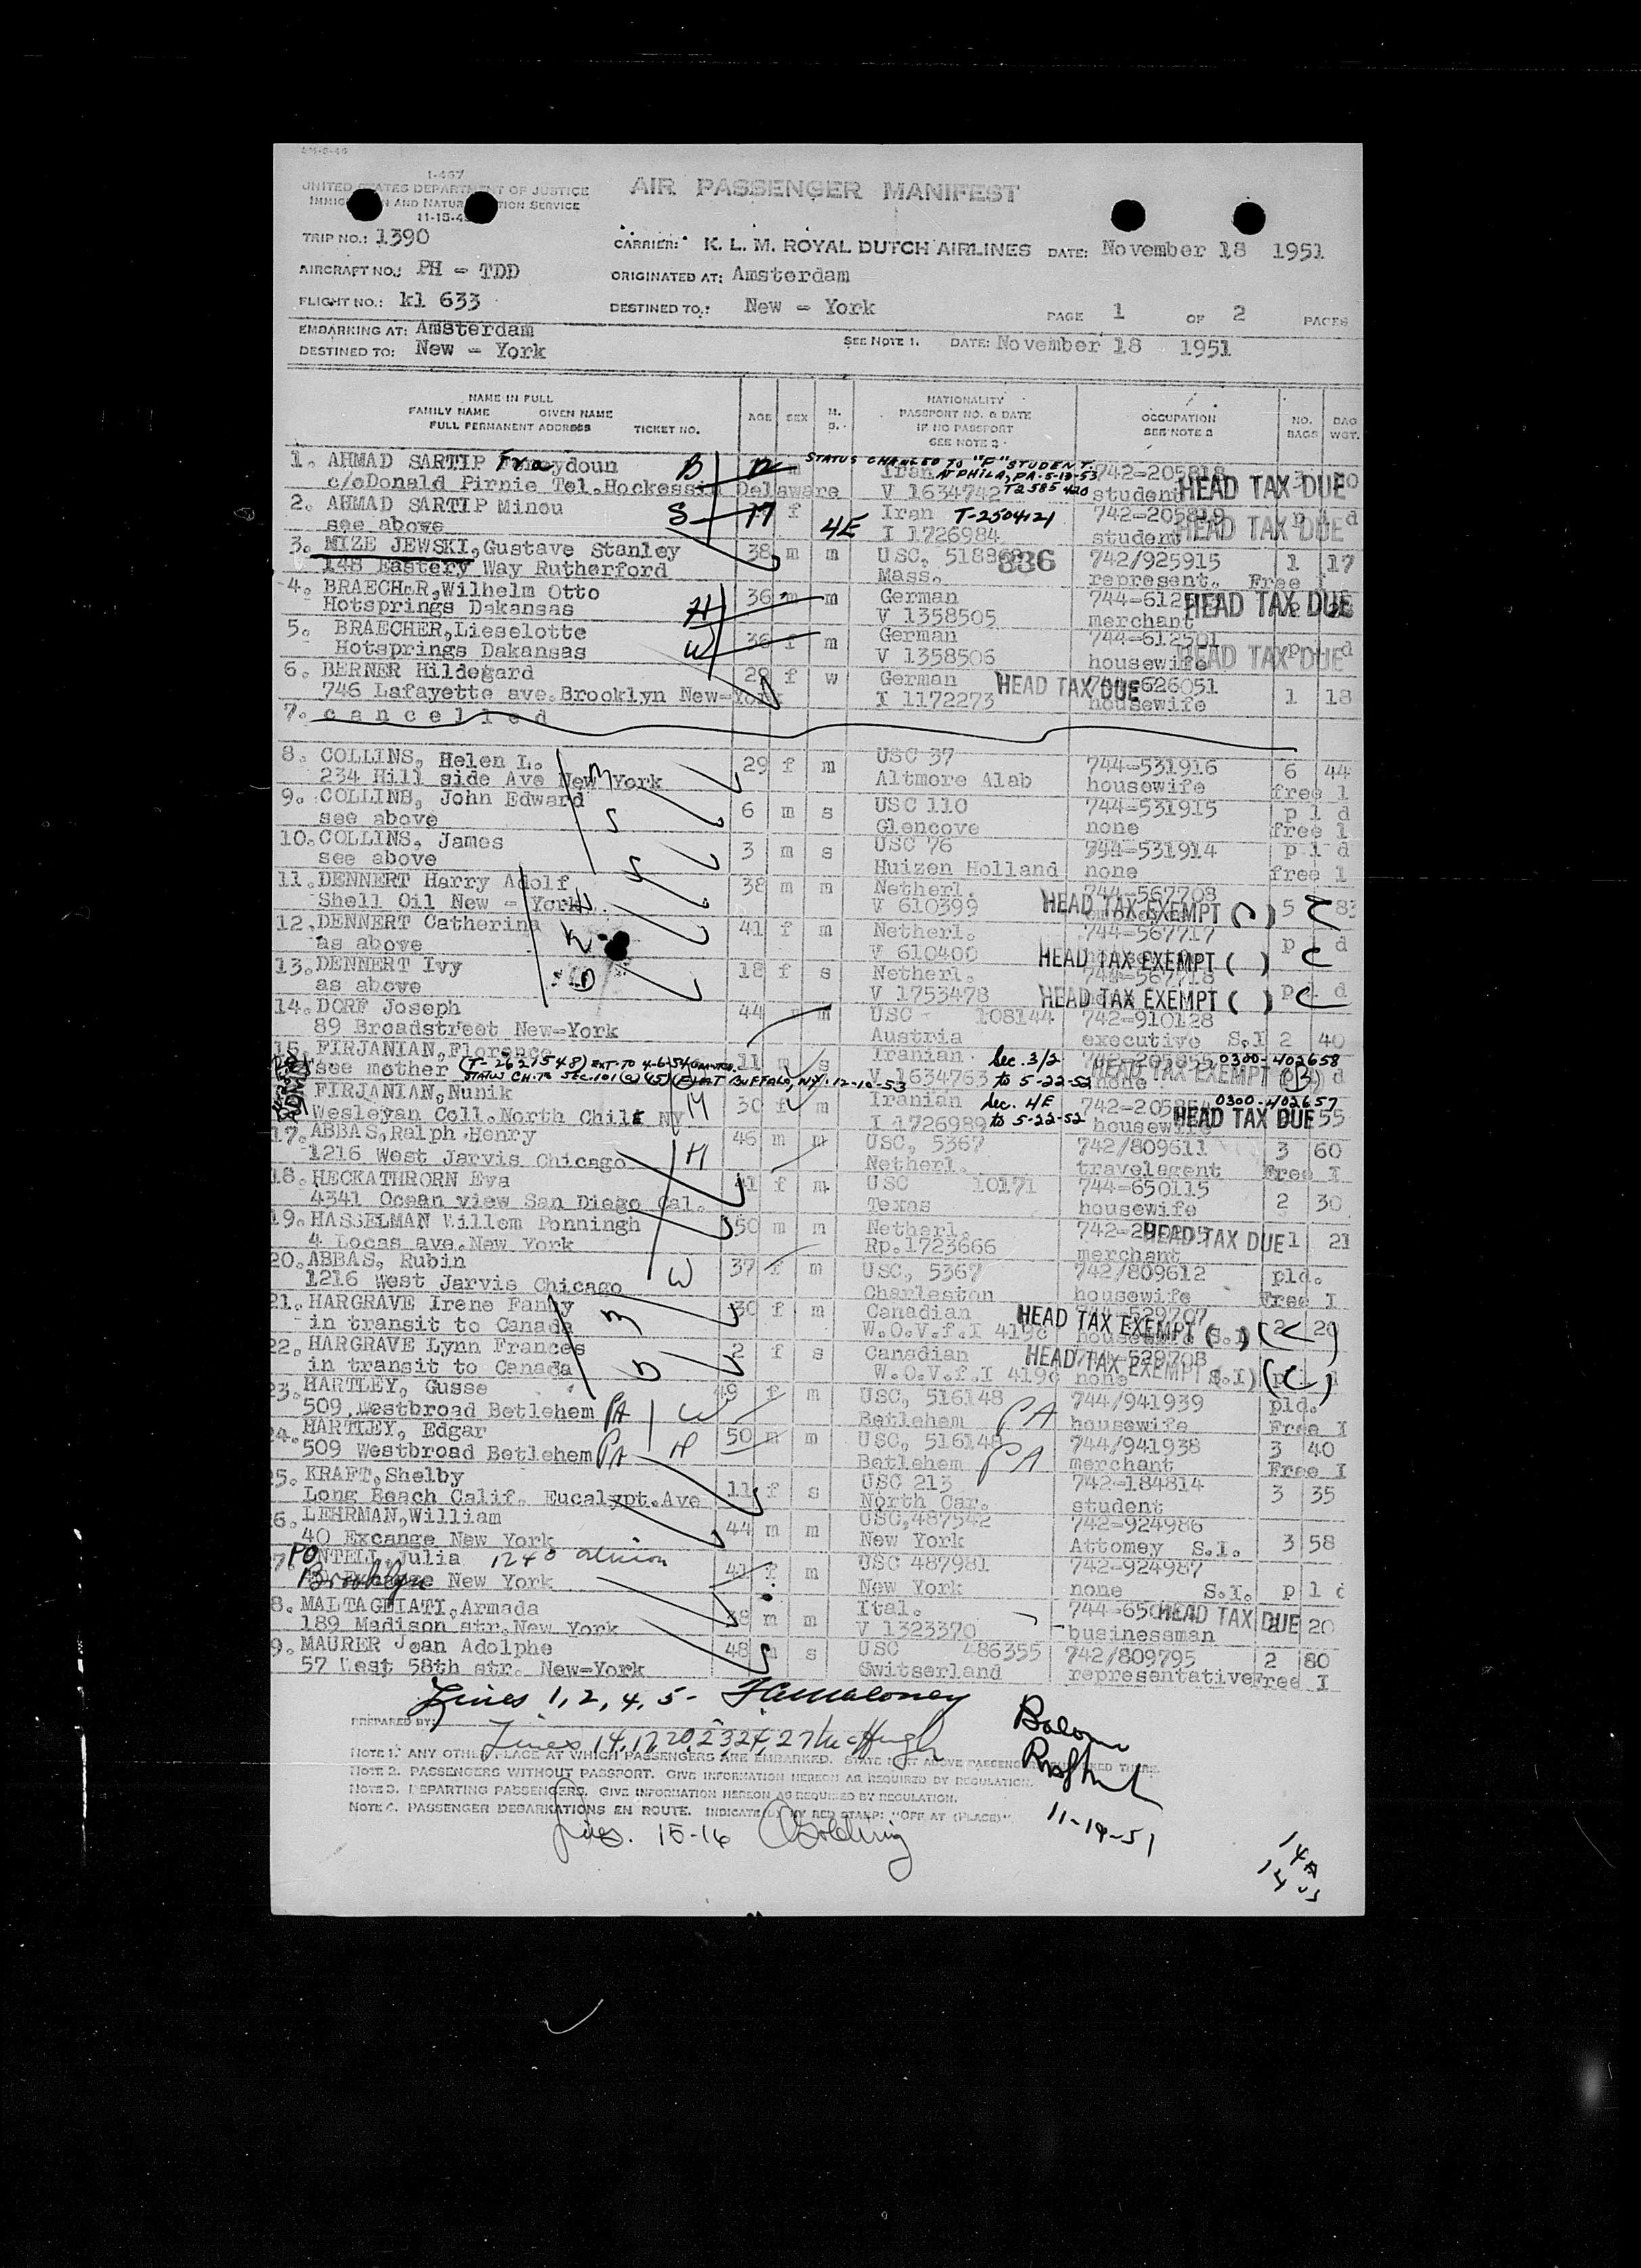 1-467
UNITED STATES DEPARTMENT OF JUSTICE
AIR PASSENGER MANIFEST
TRIP NO.: 1390
CARRIER: K. L. M. ROYAL DUTCH AIRLINES DATE: November 18 1951
AIRCRAFT NO.: PH - TDD
ORIGINATED AT: Amsterdam
FLIGHT NO.: kl 633
DESTINED TO.: New - York
PAGE 1 OF 2 PAGES
EMBARKING AT: Amsterdam
DESTINED TO: New - York
SEE NOTE 1. DATE: November 18 1951
NAME IN FULL
FAMILY NAME GIVEN NAME
FULL PERMANENT ADDRESS TICKET NO.
AGE SEX M. S.
NATIONALITY
PASSPORT NO. & DATE
IF NO PASSPORT
SEE NOTE 2
OCCUPATION
SEE NOTE 2
NO. BAGS
BAG WGT.
STATUS CHANGED TO "F" STUDENT.
1. AHMAD SARTIP B m Iran AT PHILA, PA. 742-205818
c/oDonald Pirnie Tel.Hockessin Delaware V 1634742 student HEAD TAX DUE
2. AHMAD SARTIP Minou S 17 f Iran T-2504121 742-205819 p l d
see above 4E I 1726984 student HEAD TAX DUE
3. MIZE JEWSKI,Gustave Stanley 38 m m USC. 836 742/925915 1 17
148 Eastery Way Rutherford Mass. represent. Free
4. BRAECHER,Wilhelm Otto 36 m m German
Hotsprings Dakansas H V 1358505 merchant HEAD TAX DUE
5. BRAECHER,Lieselotte 36 f m German 744-612501 p l d
Hotsprings Dakansas W V 1358506 housewife HEAD TAX DUE
6. BERNER Hildegard 28 f w German HEAD TAX DUE 744-626051
746 Lafayette ave.Brooklyn New-York I 1172273 housewife 1 18
7. c a n c e l l e d
8. COLLINS, Helen L. 29 f m USC 37 744-531916 6 44
234 Hill side Ave New York M Altmore Alab housewife free 1
9. COLLINS, John Edward 6 m s USC 110 744-531915 p l d
see above S Glencove none free 1
10. COLLINS, James 3 m s USC 76 744-531914 p l d
see above S Huizen Holland none free 1
11. DENNERT Harry Adolf 38 m m Netherl. 744-567708
Shell Oil New - York V 610399 HEAD TAX EXEMPT ( ) 5 83
12. DENNERT Catherina 41 f m Netherl. 744-567717 p l d
as above V 610400 HEAD TAX EXEMPT ( ) C
13. DENNERT Ivy 18 f s Netherl. 744-567718
as above D V 1753478 HEAD TAX EXEMPT ( ) C p l d
14. DORF Joseph 44 m USC 108144 742-910128
89 Broadstreet New-York Austria executive S.I 2 40
15. FIRJANIAN,Florence 11 m s Iranian Sec. 3/2 0300-402658
see mother (T-2621548) EXT. TO 4-6-54 V 1634763 to 5-22-52 none HEAD TAX EXEMPT (B)
STATUS CH. TO SEC. 101(a)(15)(F) AT BUFFALO, NY. 12-10-53
FIRJANIAN,Nunik 30 f m Iranian Sec. 4E 0300-402657
Wesleyan Coll.North Chili NY M I 1726989 to 5-22-52 housewife HEAD TAX DUE 55
17. ABBAS,Ralph Henry 46 m m USC, 5367 742/809611 3 60
1216 West Jarvis Chicago H Netherl. travelagent Free I
18. HECKATHRORN Eva 41 f m USC 10171 744-650115
4341 Ocean view San Diego Cal. Texas housewife 2 30
19. HASSELMAN Willem Ponningh 50 m m Netherl. HEAD TAX DUE 1 21
4 Locas ave.New York Rp.1723666 merchant
20. ABBAS, Rubin 37 f m USC, 5367 742/809612 pld.
1216 West Jarvis Chicago W Charleston housewife Free I
21. HARGRAVE Irene Fanny 30 f m Canadian 744-529707
in transit to Canada M W.O.V.f.I 419c HEAD TAX EXEMPT ( ) (C)
22. HARGRAVE Lynn Frances 2 f s Canadian 744-529708
in transit to Canada D W.O.V.f.I 419c none HEAD TAX EXEMPT (S.I) (C)
23. HARTLEY, Gusse 49 f m USC, 516148 744/941939 pld.
509 Westbroad Betlehem PA W Betlehem PA housewife Free I
24. HARTLEY, Edgar 50 m m USC, 516148 744/941938 3 40
509 Westbroad Betlehem PA H Betlehem PA merchant Free I
25. KRAFT,Shelby 11 f s USC 213 742-184814
Long Beach Calif. Eucalypt.Ave North Car. student 3 35
26. LEHRMAN,William 44 m m USC,487542 742-924986
40 Excange New York New York Attomey S.I. 3 58
27. PONTELL,Julia 1240 41 f m USC 487981 742-924987
Brooklyn Excange New York New York none S.I. p l d
28. MALTAGLIATI,Armada m m Ital. HEAD TAX DUE 20
189 Madison str.New York V 1323370 businessman
29. MAURER Jean Adolphe 48 m s USC 486355 742/809795 2 80
57 West 58th str. New-York Switserland representative Free I
Lines 1, 2, 4, 5-
PREPARED BY:
Lines 14, 17, 20, 23, 24, 27 McHugh
NOTE 1. ANY OTHER PLACE AT WHICH PASSENGERS ARE EMBARKED.
NOTE 2. PASSENGERS WITHOUT PASSPORT. GIVE INFORMATION HEREON AS REQUIRED BY REGULATION.
NOTE 3. DEPARTING PASSENGERS. GIVE INFORMATION HEREON AS REQUIRED BY REGULATION.
NOTE 4. PASSENGER DEBARKATIONS EN ROUTE. INDICATE BY RED STAMP: "OFF AT (PLACE)".
15-16
11-19-51